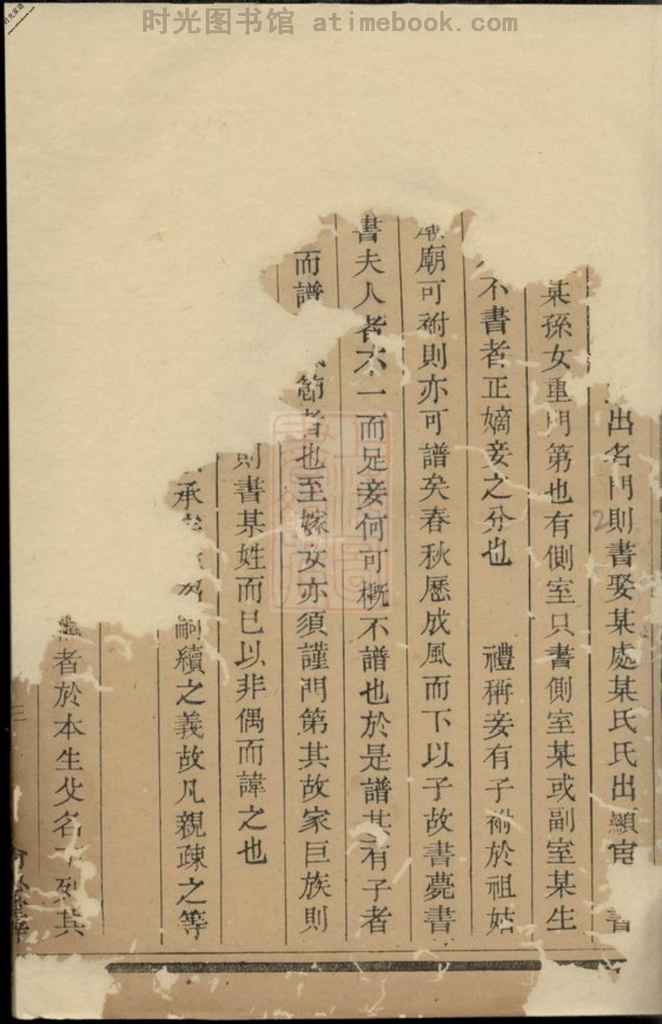 时光图书馆 atimebook.com
出名門則書娶某處某氏氏出顯宦書
某孫女重門第也有側室只書側室某或副室某生
不書者正嫡妾之分也 禮稱妾有子祔於祖姑
廟可祔則亦可譜矣春秋歷成風而下以子故書薨書
書夫人者不一而足妾何可概不譜也於是譜其有子者
而譜節者也至嫁女亦須謹門第其故家巨族則
則書某姓而已以非偶而諱之也
承嗣續之義故凡親疎之等
者於本生父名下列其
三